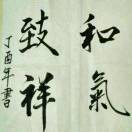 和氣
致祥
丁酉年書